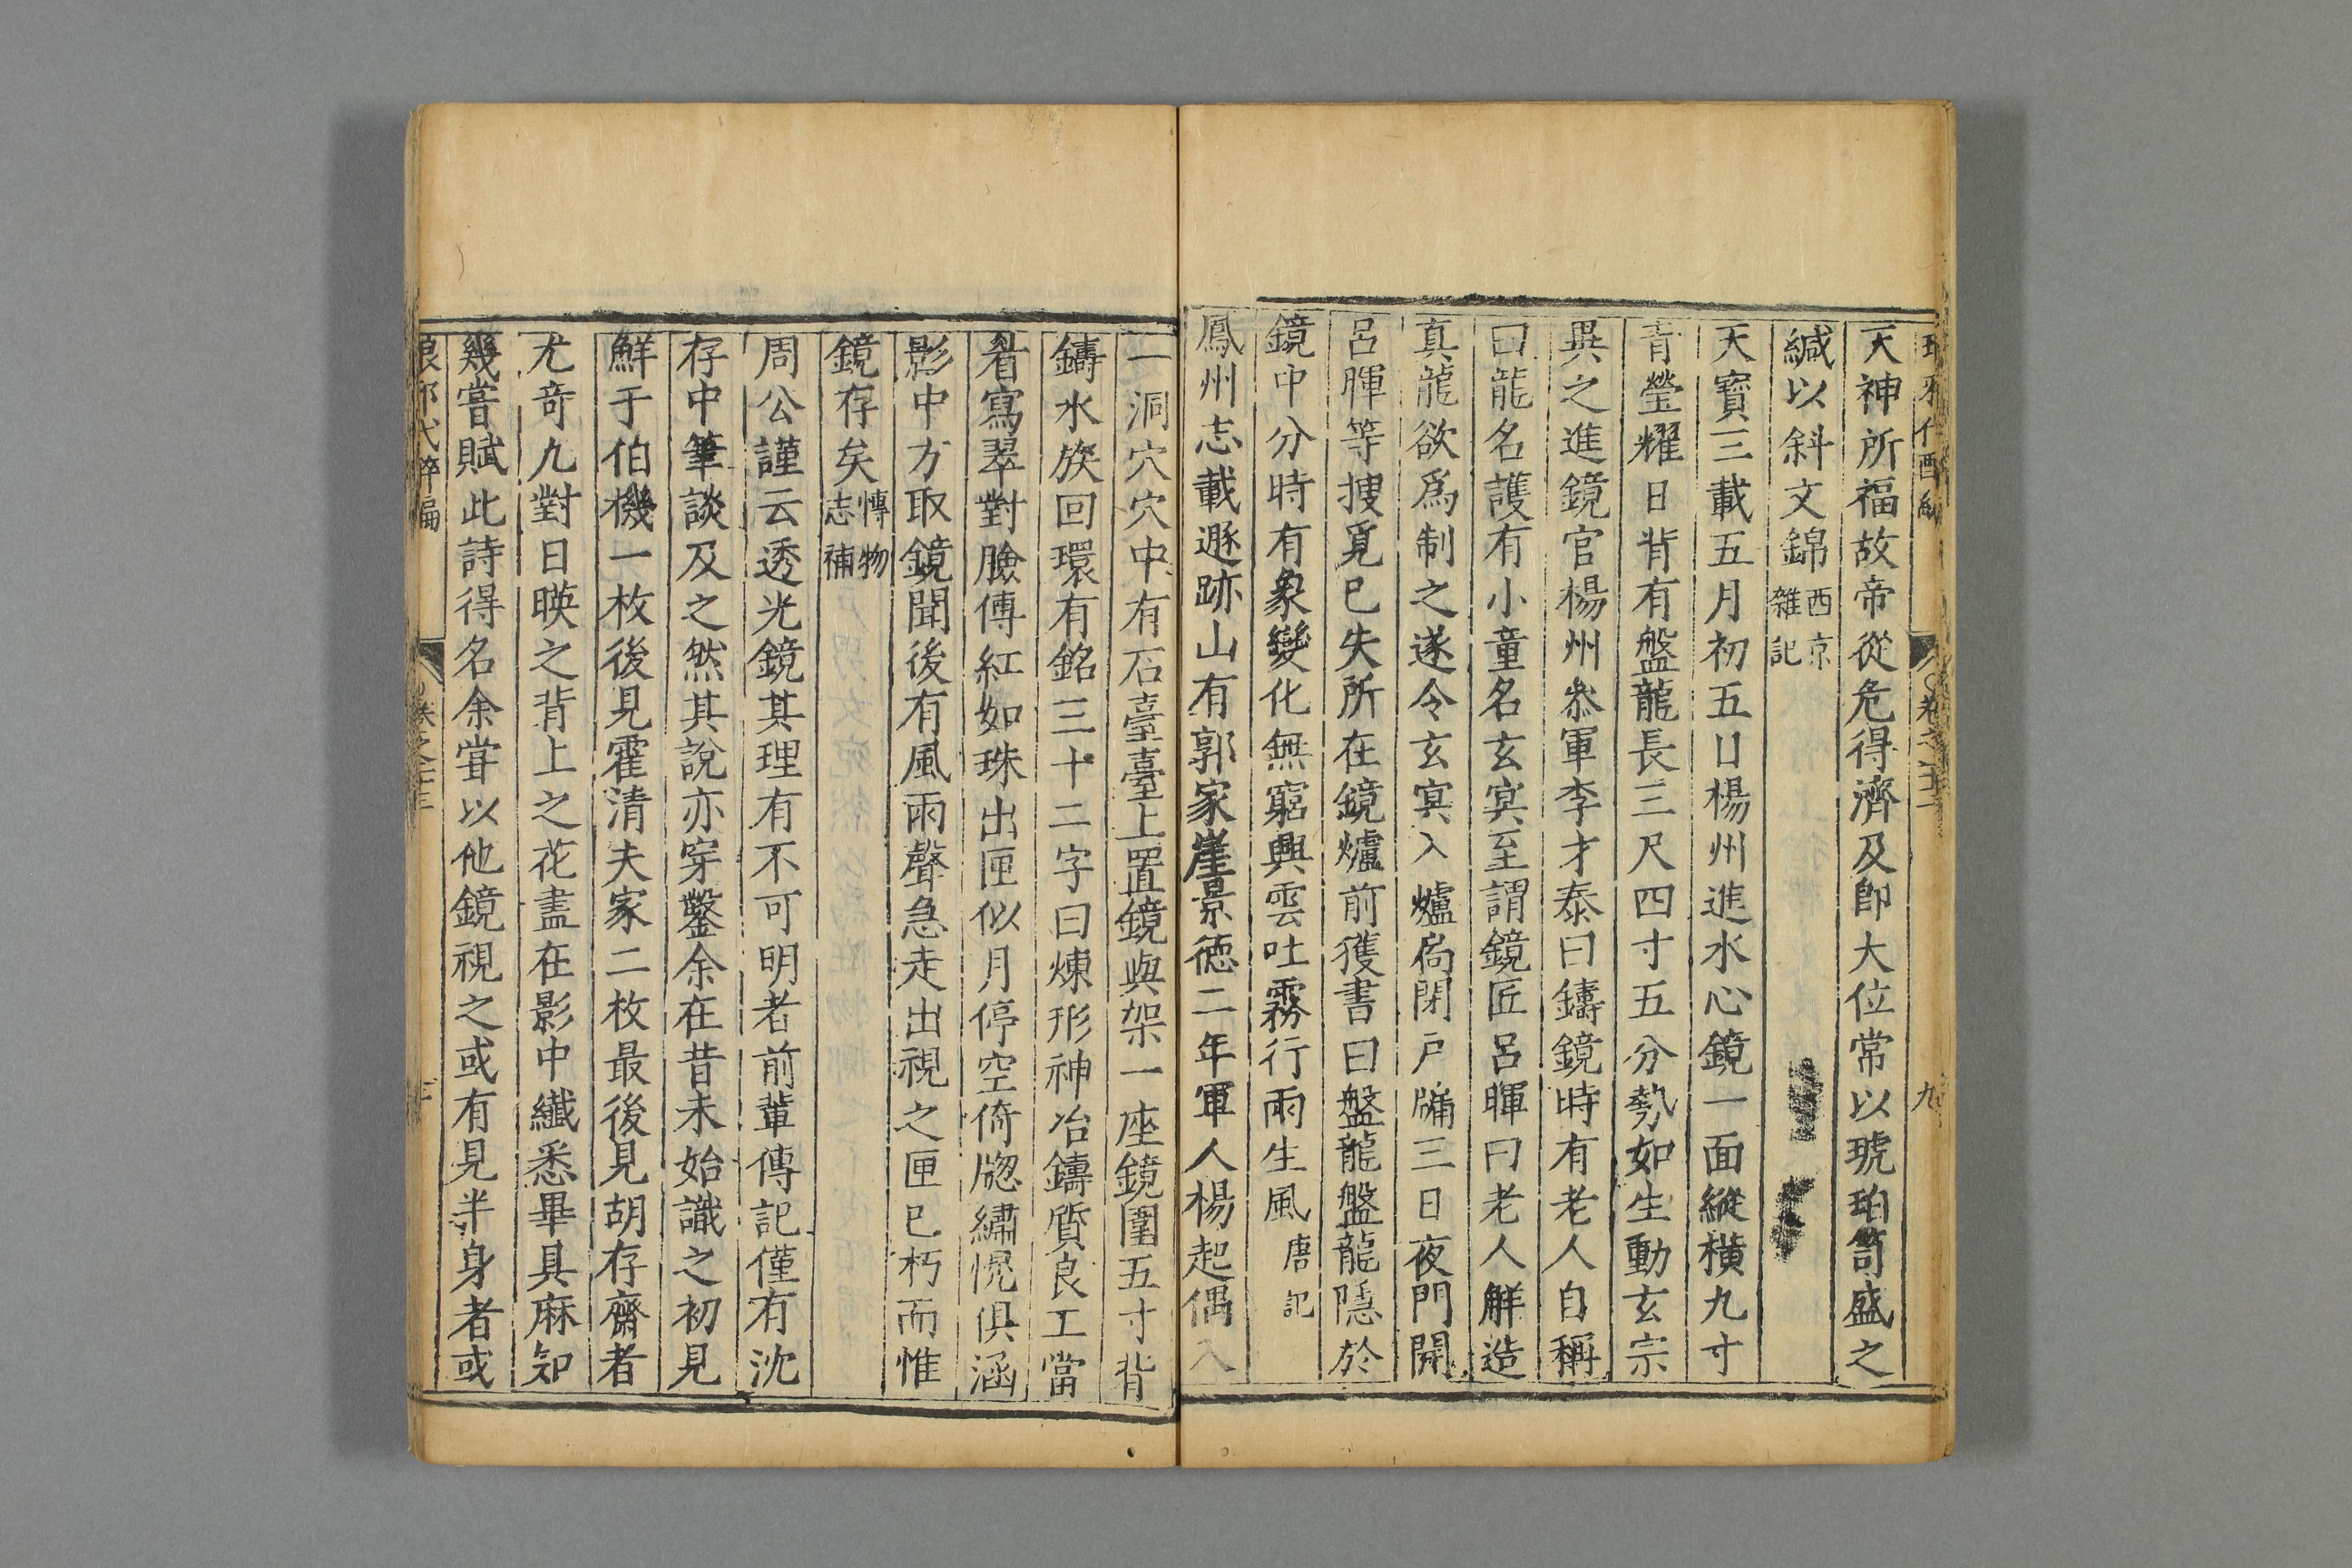 天神所福故帝從危得濟及卽大位常以琥珀笥盛之
緘以斜文錦西京雜記
天寶三載五月初五日楊州進水心鏡一面縱橫九寸
青瑩耀日背有盤龍長三尺四寸五分勢如生動玄宗
異之進鏡官楊州叅軍李才泰曰鑄鏡時有老人自稱
曰龍名護有小童名玄冥至謂鏡匠呂暉曰老人解造
真龍欲爲制之遂令玄冥入爐扃閉戸牖三日夜門開
呂暉等搜覓已失所在鏡爐前獲書曰盤龍盤龍隱於
鏡中分時有象變化無窮興雲吐霧行雨生風唐記
鳳州志載遯跡山有郭家崖景德二年軍人楊起偶入
一洞穴穴中有石臺臺上置鏡與架一座鏡圍五寸背
鑄水族回環有銘三十二字曰煉形神冶鑄質良工當
眉寫翠對臉傅紅如珠出匣似月停空倚牎繡幌俱涵
影中方取鏡聞後有風雨聲急走出視之匣已朽而惟
鏡存矣愽物志補
周公謹云透光鏡其理有不可明者前輩傳記僅有沈
存中筆談及之然其說亦穿鑿余在昔未始識之初見
鮮于伯機一枚後見霍清夫家二枚最後見胡存齋者
尤竒凢對日暎之背上之花盡在影中纖悉畢具麻知
幾嘗賦此詩得名余甞以他鏡視之或有見半身者或